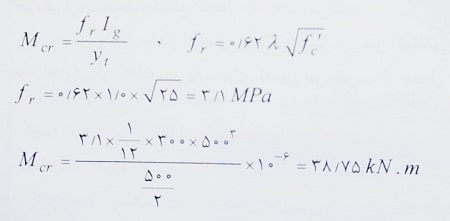 M_cr = f_r I_g / y_t , f_r = ۰/۶۲ λ √f'_c
f_r = ۰/۶۲ × ۱/۰ × √۲۵ = ۳/۱ MPa
M_cr = (۳/۱ × ۱/۱۲ × ۳۰۰ × ۵۰۰^۳) / (۵۰۰/۲) × ۱۰^-۶ = ۳۸/۷۵ kN . m